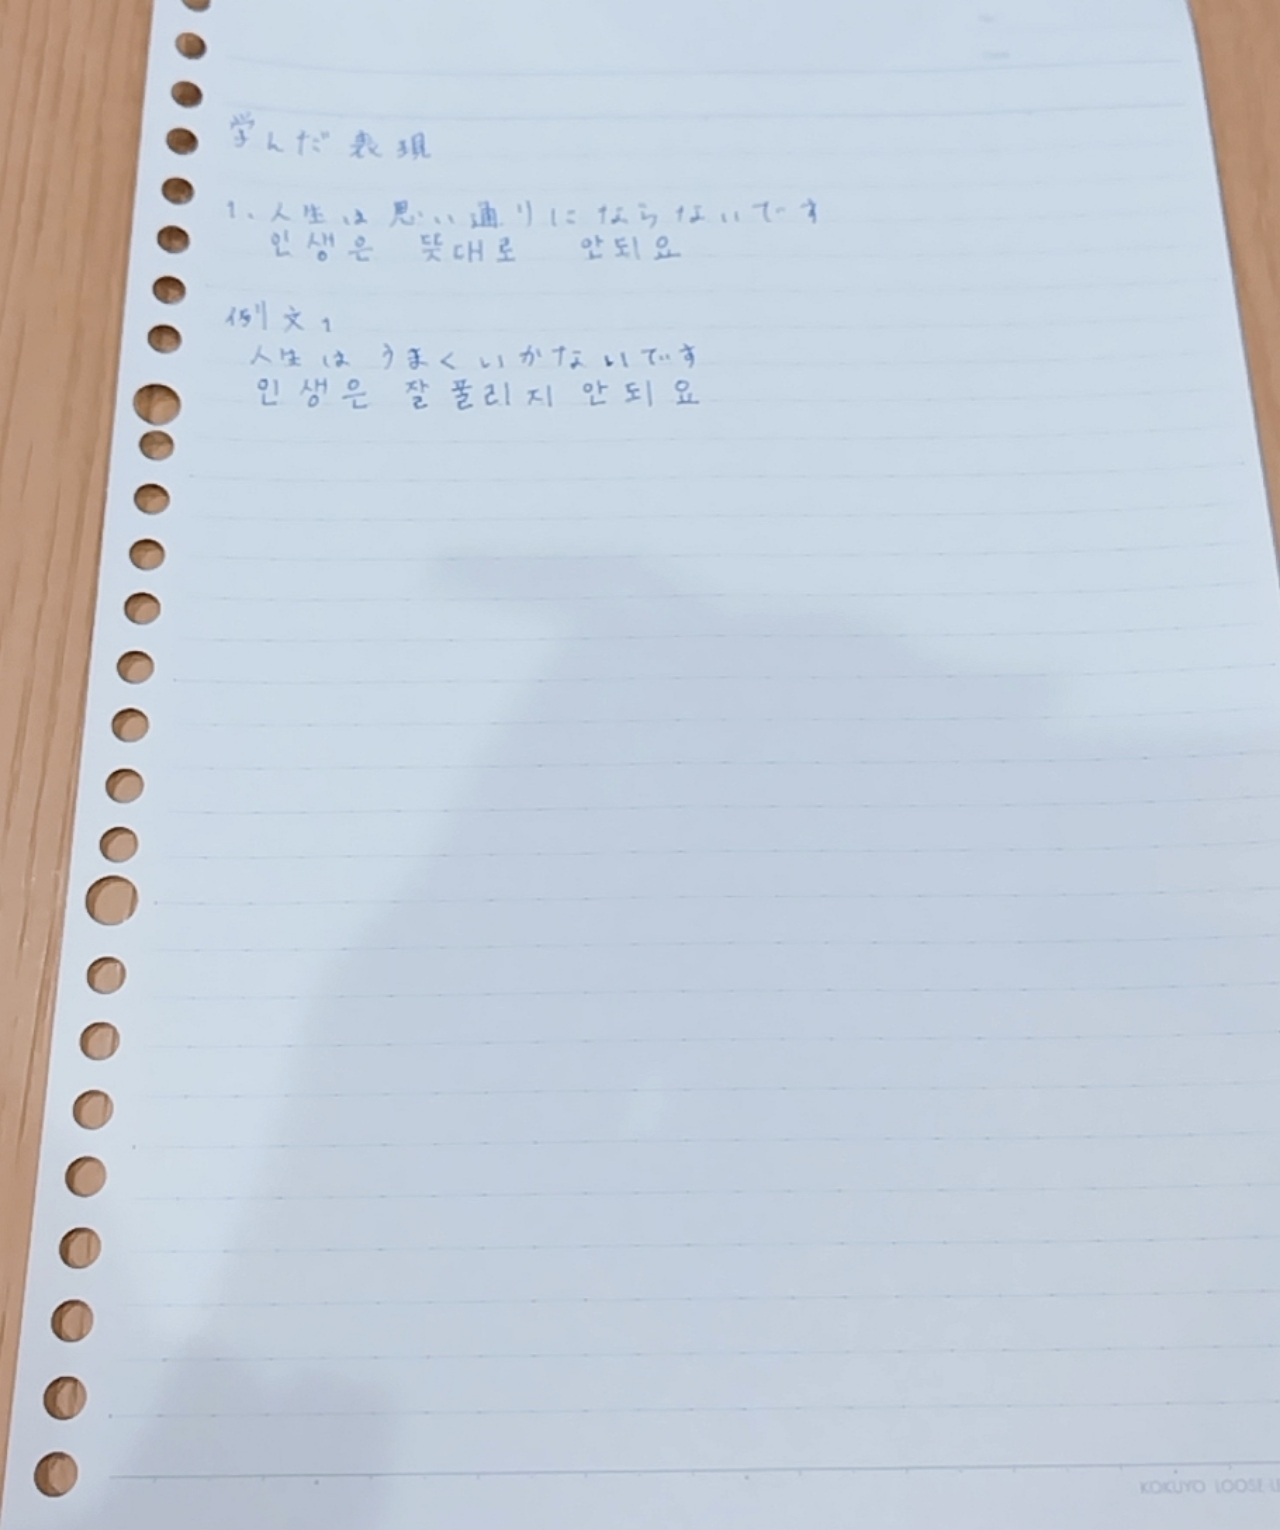 学んだ表現
1. 人生は思い通りにならないです
인생은 뜻대로 안되요
例文1
人生はうまくいかないです
인생은 잘 풀리지 안되요
KOKUYO LOOSE-L